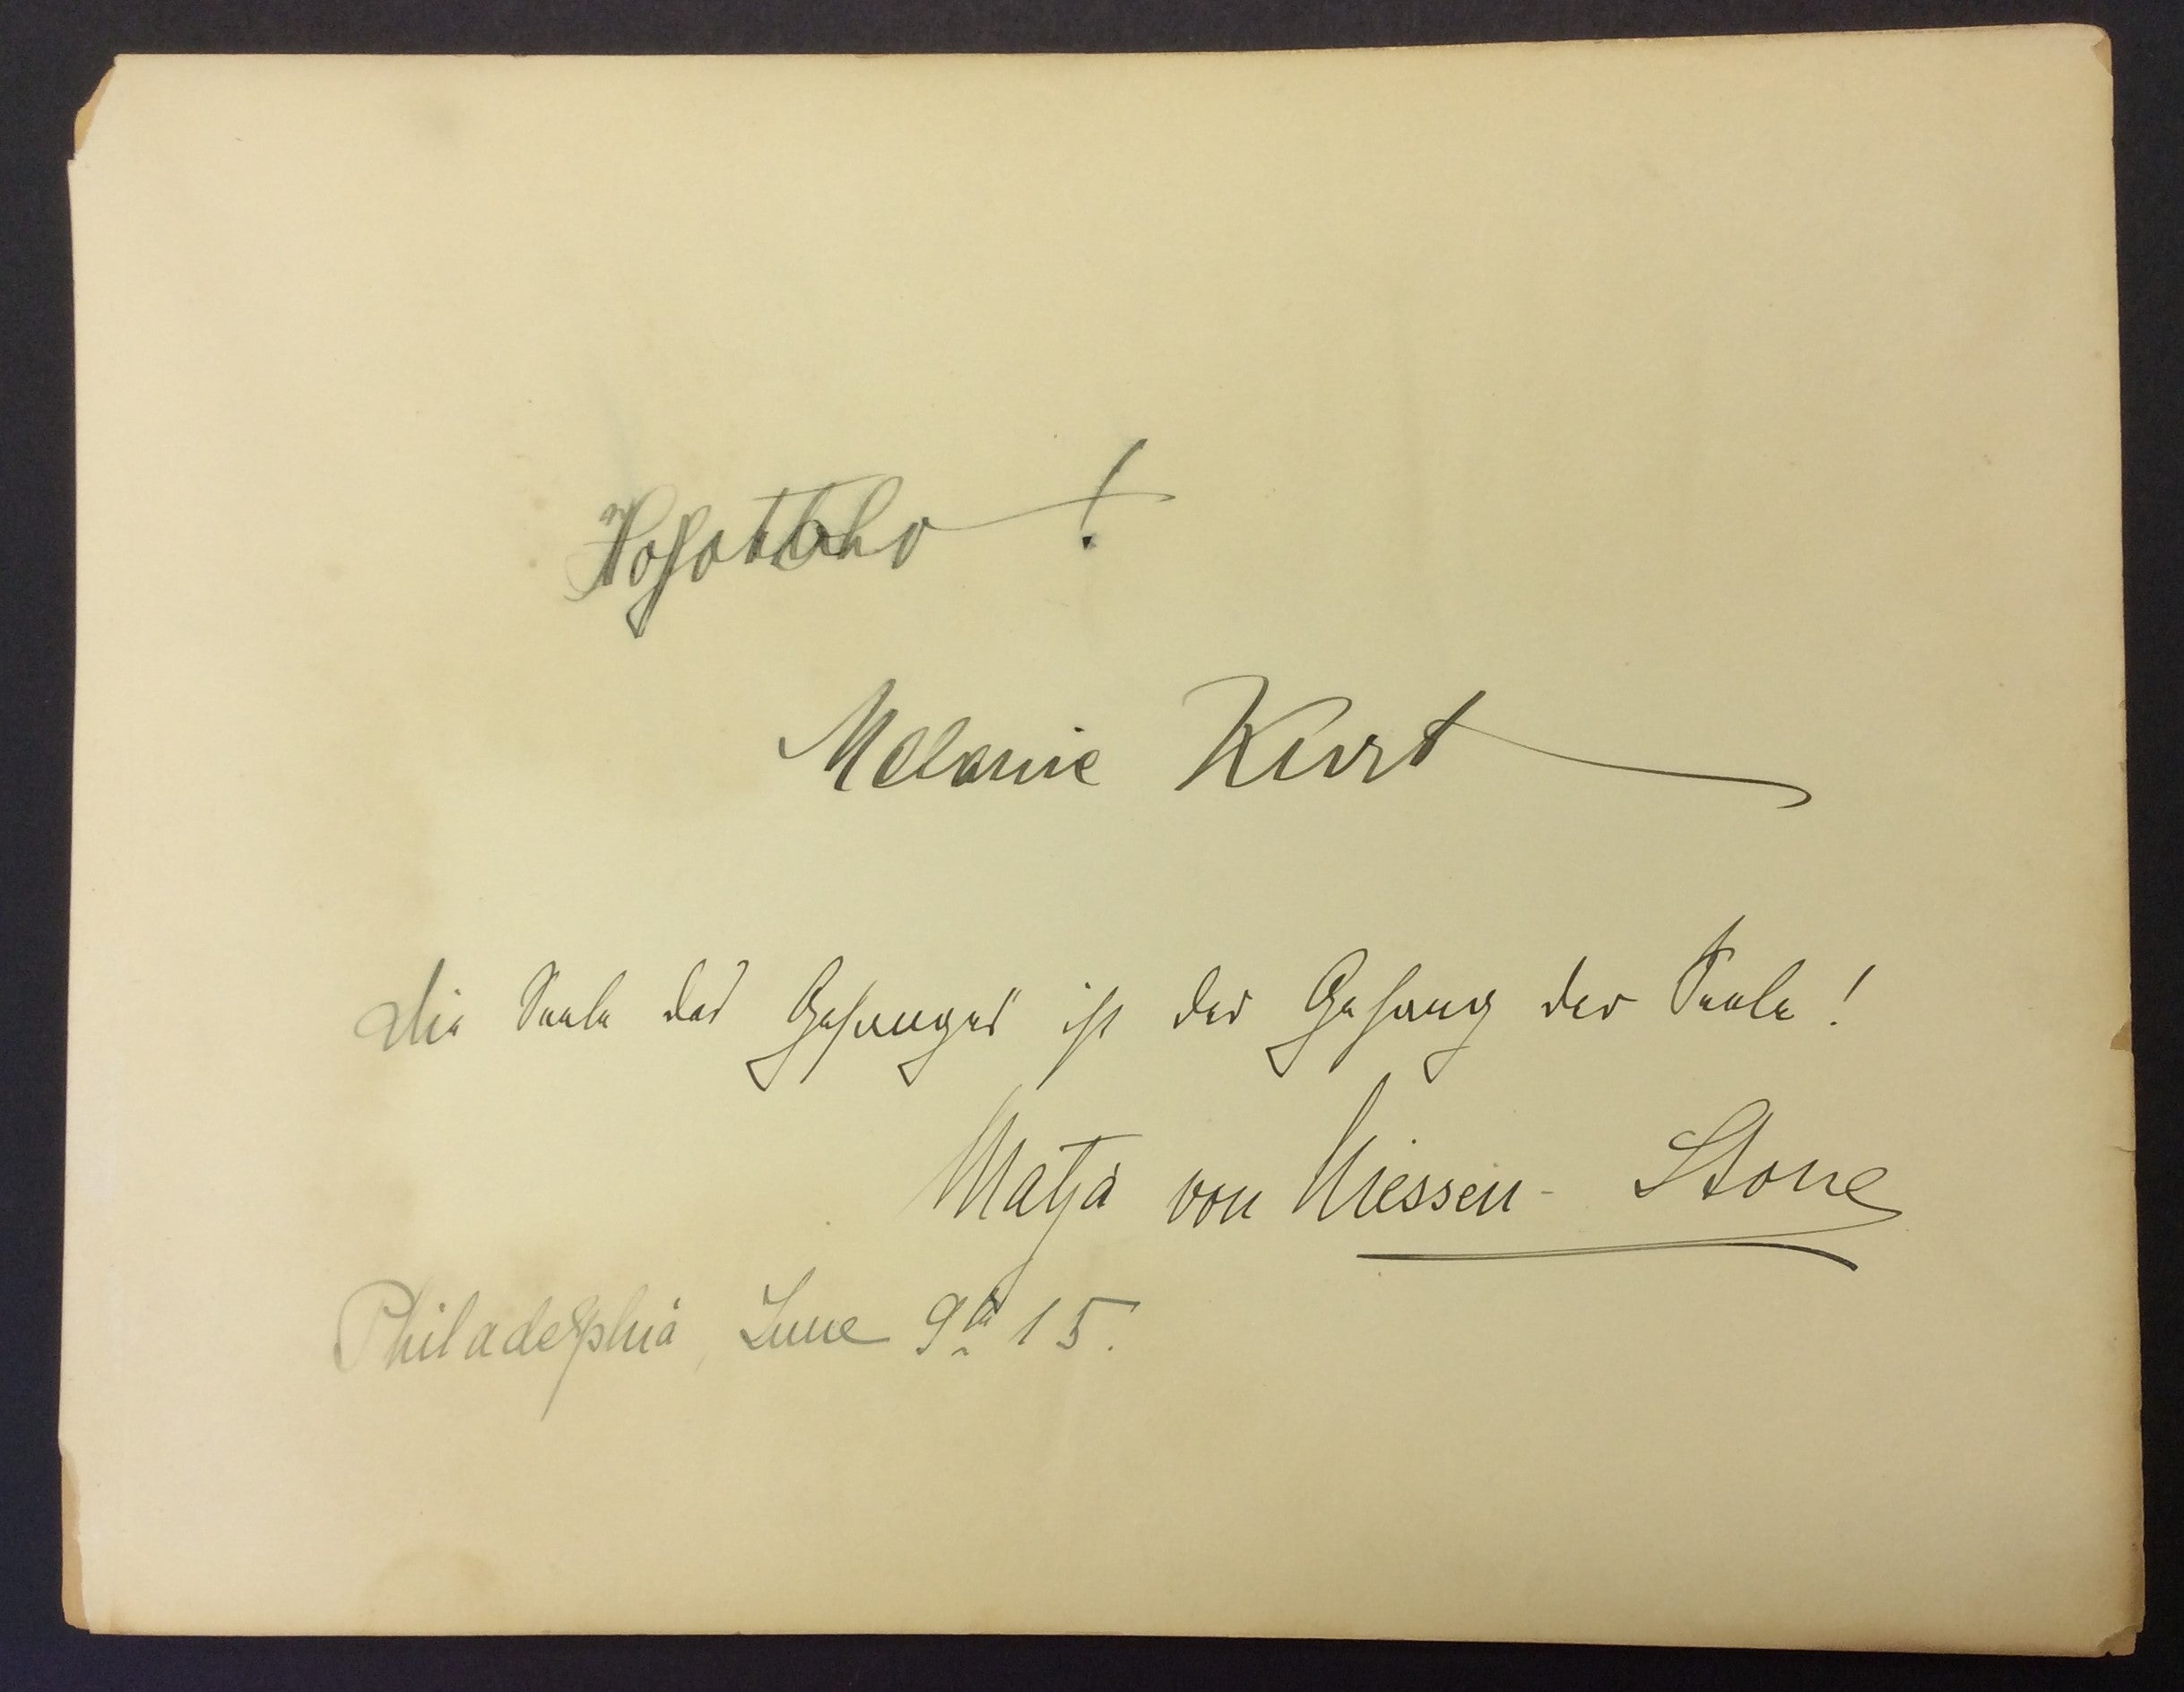 Hojotoho!
Melanie Kurt
Die Seele des Gesanges ist der Gesang der Seele!
Matja von Niessen-Stone
Philadelphia, June 9th 15.